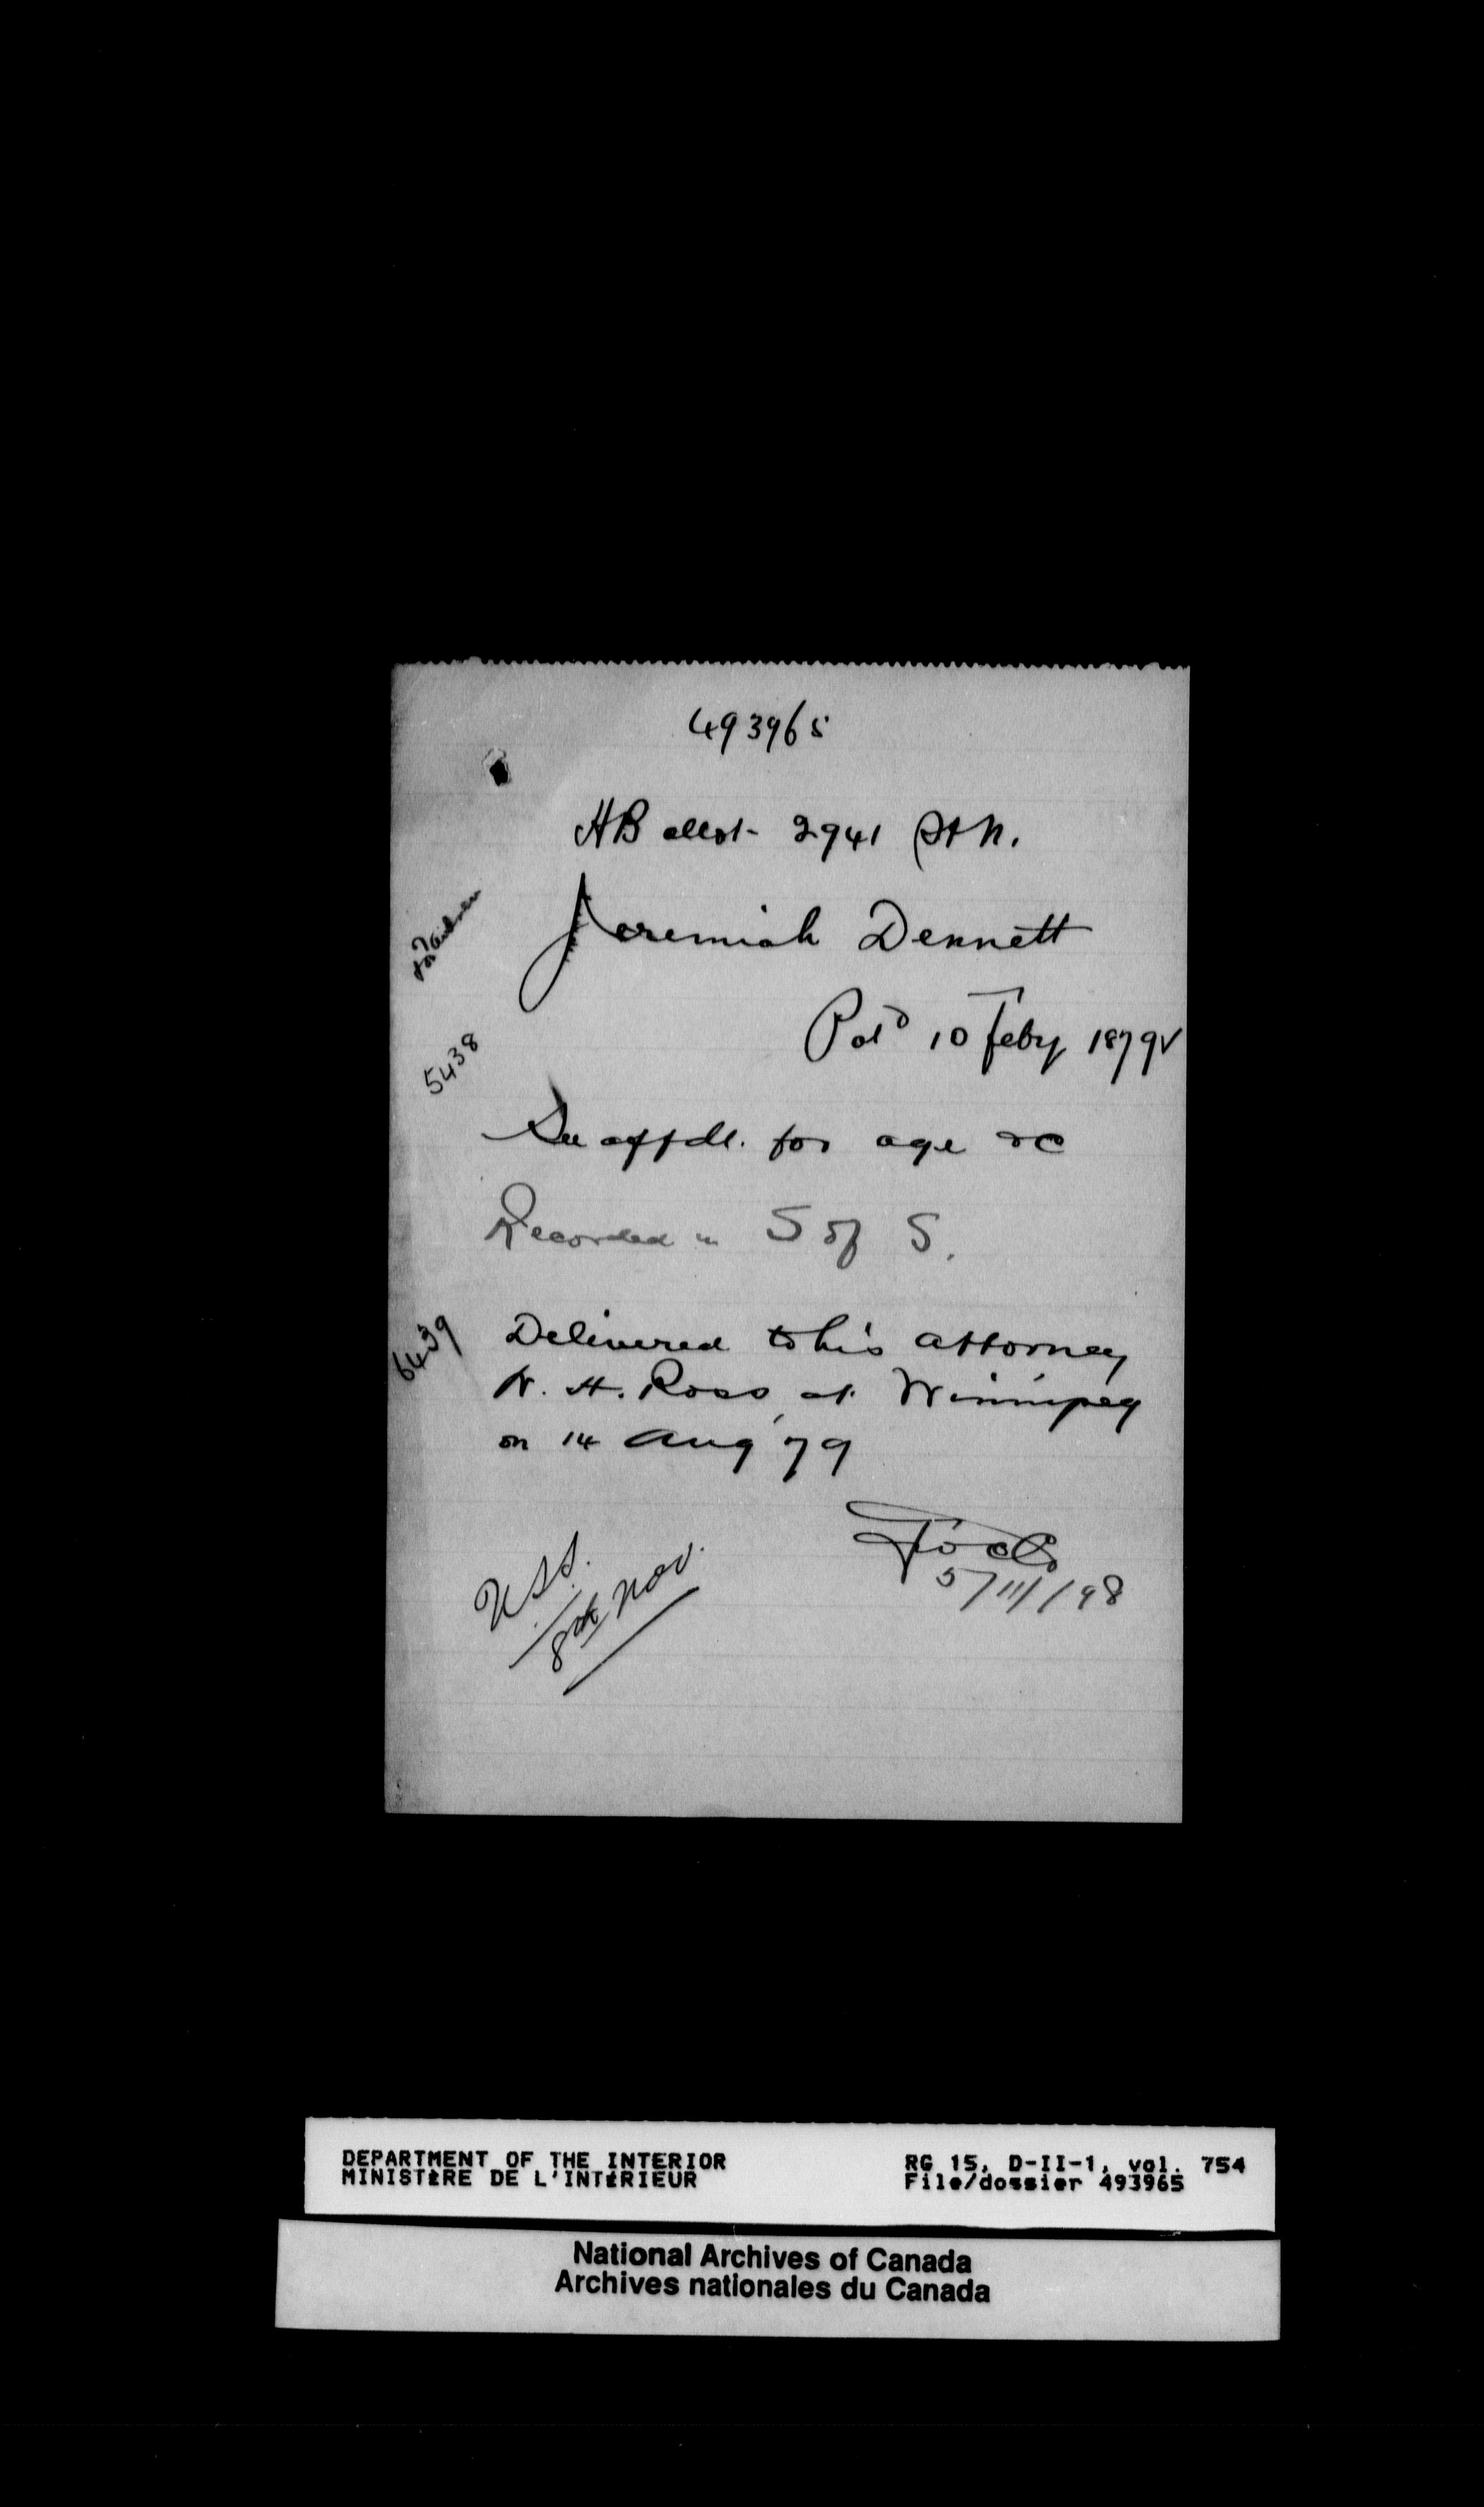 493965
HB allot- 2941 St N.
Jeremiah Dennett
Patd 10 Feby 1879
5438
See affdt. for age &c
Recorded in S of S.
6439
Delivered to his attorney
W. H. Ross, at Winnipeg
on 14 Aug '79
5/11/98
8th Nov.
DEPARTMENT OF THE INTERIOR
MINISTÈRE DE L'INTÉRIEUR
RG 15, D-II-1, vol. 754
File/dossier 493965
National Archives of Canada
Archives nationales du Canada